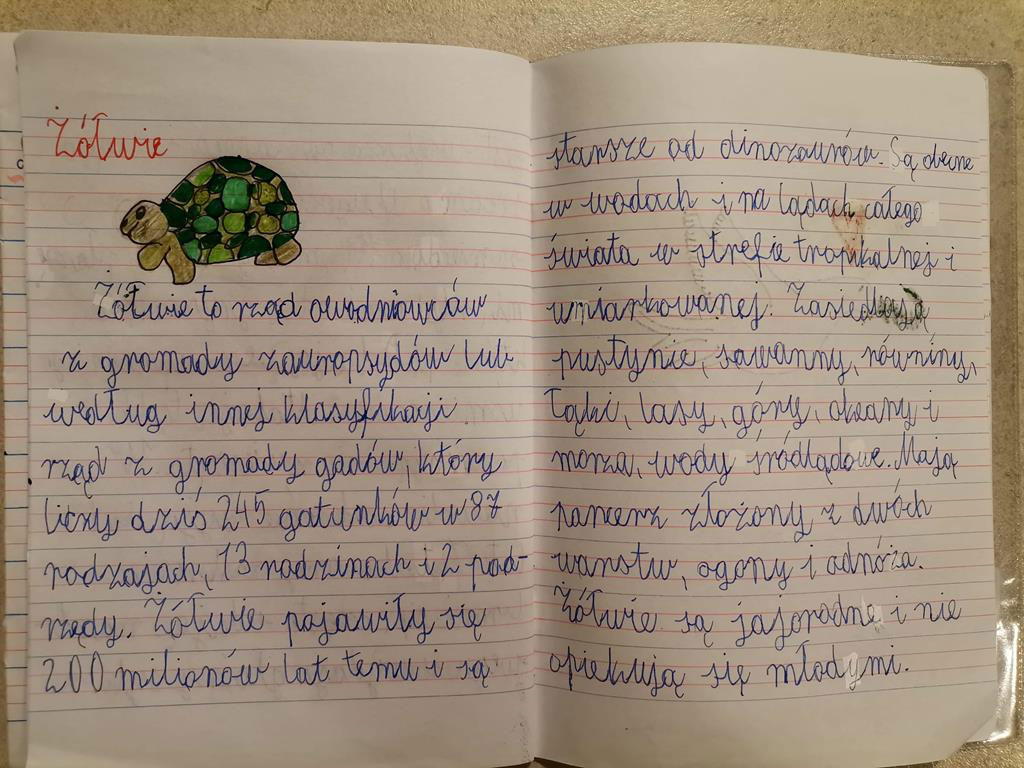 Żółwie
Żółwie to rząd owodniowców
z gromady zauropsydów lub
według innej klasyfikacji
rząd z gromady gadów, który
liczy dziś 245 gatunków w 87
rodzajach, 13 rodzinach i 2 pod-
rzędy. Żółwie pojawiły się
200 milionów lat temu i są
starsze od dinozaurów. Są obecne
w wodach i na lądach całego
świata w strefie tropikalnej i
umiarkowanej. Zasiedlają
pustynie, sawanny, równiny,
łąki, lasy, góry, oceany i
morza, wody śródlądowe. Mają
pancerz złożony z dwóch
warstw, ogony i odnóża.
Żółwie są jajorodne i nie
opiekują się młodymi.